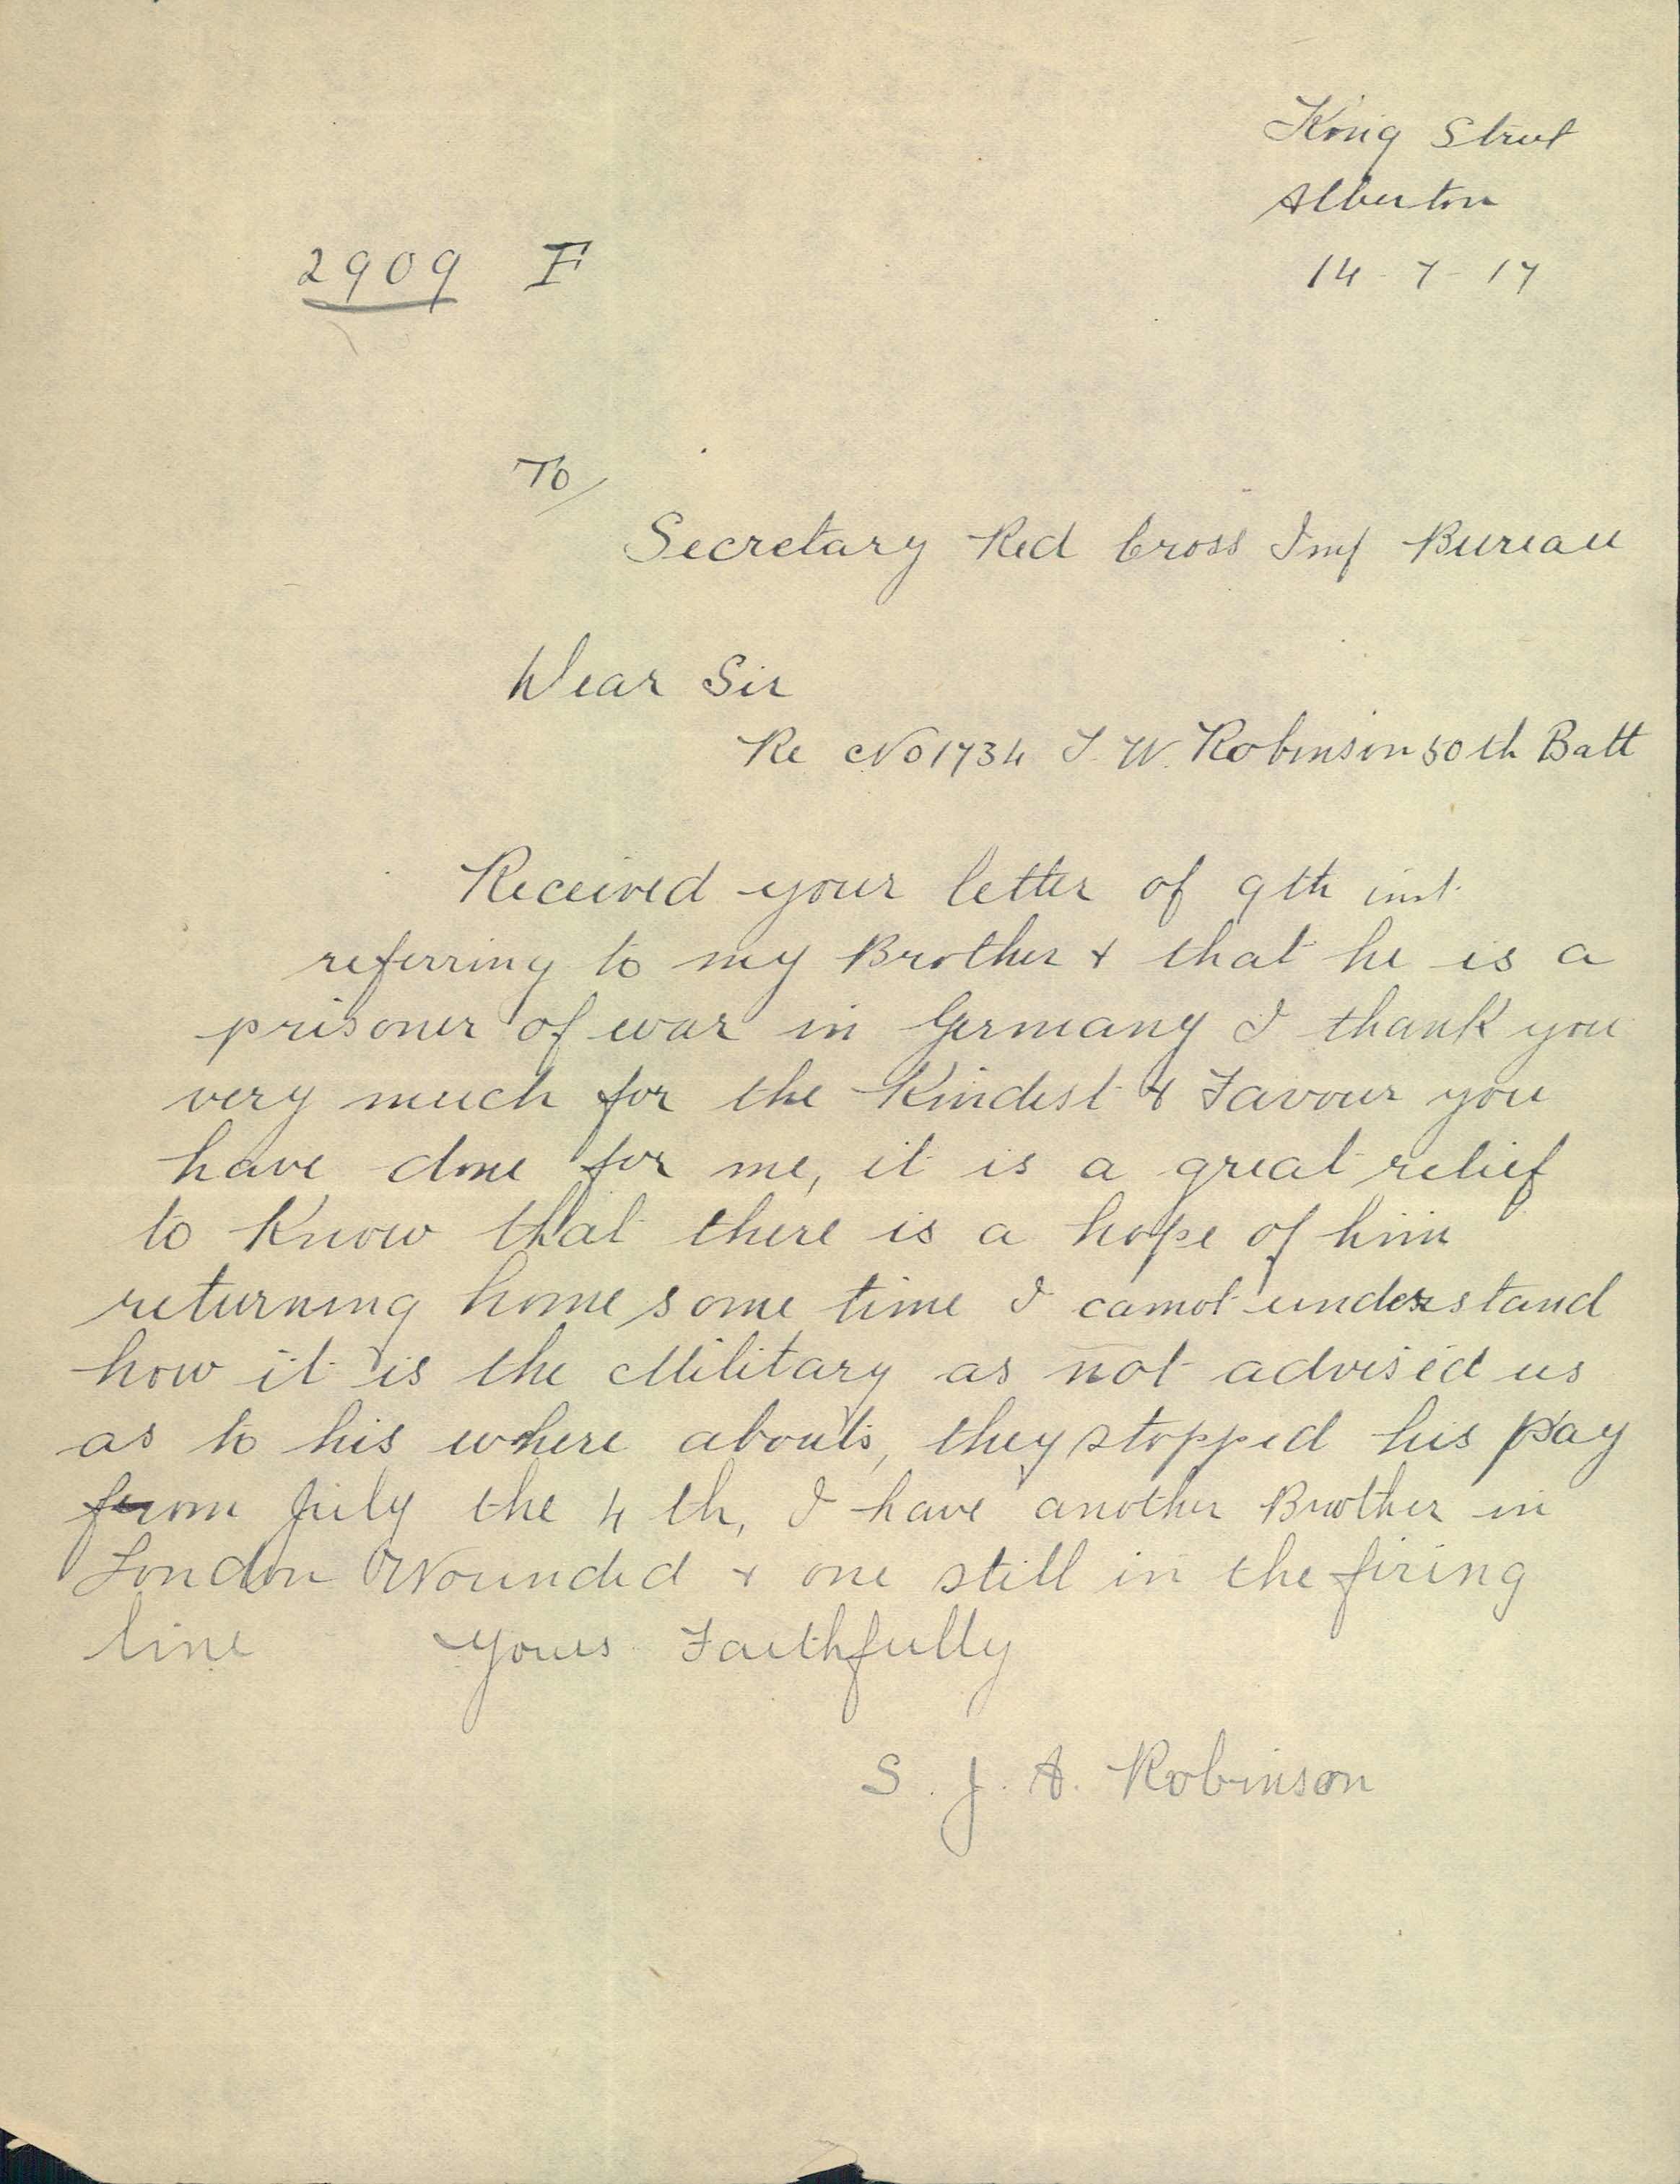 King Street
Alberton
14-7-17
2909 F
To/
Secretary Red Cross Inf Bureau
Dear Sir
Re No 1734 T. W. Robinson 50th Batt
Received your letter of 9th inst
referring to my Brother & that he is a
prisoner of war in Germany I thank you
very much for the Kindest & Favour you
have done for me, it is a great relief
to Know that there is a hope of him
returning home some time I cannot understand
how it is the Military as not advised us
as to his where abouts, they stopped his pay
from July the 4 th, I have another Brother in
London Wounded & one still in the firing
line Yours Faithfully
S. J. A. Robinson